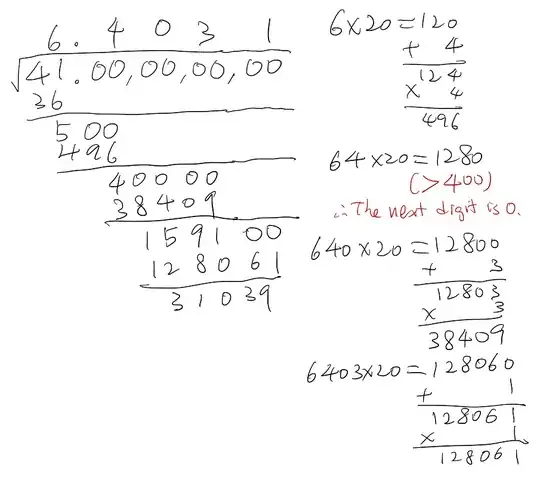 6.4031
√41.00,00,00,00
36
500
496
40000
38409
159100
128061
31039
6×20=120
+ 4
124
× 4
496
64×20=1280
(>400)
∴ The next digit is 0.
640×20=12800
+ 3
12803
× 3
38409
6403×20=128060
+ 1
128061
× 1
128061